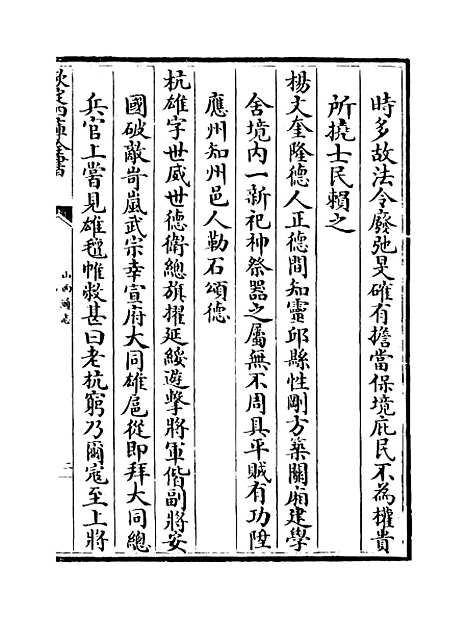 時多故法令廢弛旻確有擔當保境庇民不為權貴
所撓士民賴之
楊文奎隆德人正德間知靈邱縣性剛方築關廂建學
舍境内一新祀神祭器之屬無不周具平賊有功陞
應州知州邑人勒石頌德
杭雄字世威世德衛總旗擢延綏遊擊將軍偕副將安
國破敵岢嵐武宗幸宣府大同雄扈從即拜大同總
兵官上嘗見雄氊帷敝甚曰老杭窮乃爾寇至上將
欽定四庫全書
山西通志